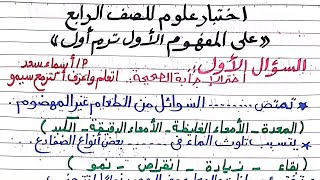 اختبار علوم للصف الرابع
«على المفهوم الأول ترم أول»
السؤال الأول:
P/ أسماء سعد
اختر الإجابة الصحيحة:
اتعلم واعرف أكتر مع سيمو
تمتص ......... السوائل من الطعام غير المهضوم.
(المعدة - الأمعاء الغليظة - الأمعاء الدقيقة - الكبد)
يتسبب تلوث الماء في ......... بعض أنواع الضفادع
(بقاء - زيادة - انقراض - نمو)